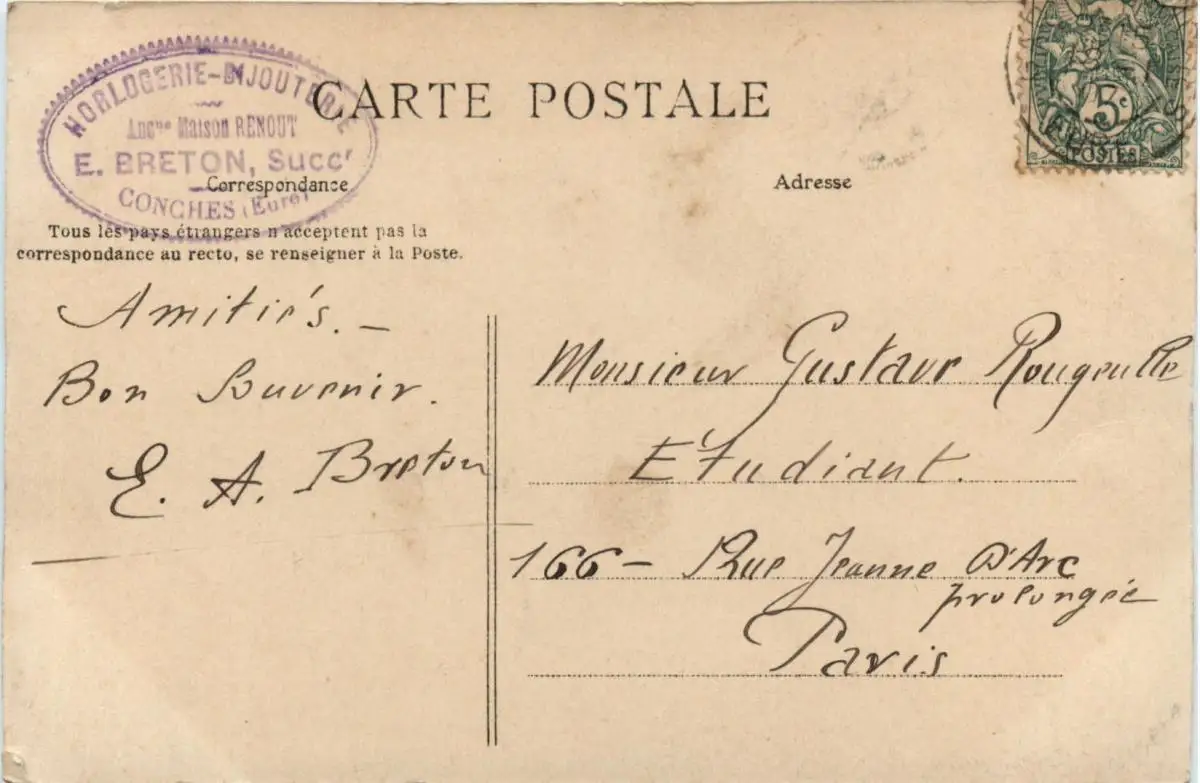 HORLOGERIE-BIJOUTERIE
Ancne Maison RENOUT
E. BRETON, Succr
CONCHES (Eure)
CARTE POSTALE
Correspondance
Tous les pays étrangers n'acceptent pas la
correspondance au recto, se renseigner à la Poste.
Amitiés. —
Bon Souvenir.
E. A. Breton
Adresse
5c
POSTES
EURE
Monsieur Gustave
Étudiant.
166 — Rue Jeanne D'Arc
prolongée
Paris